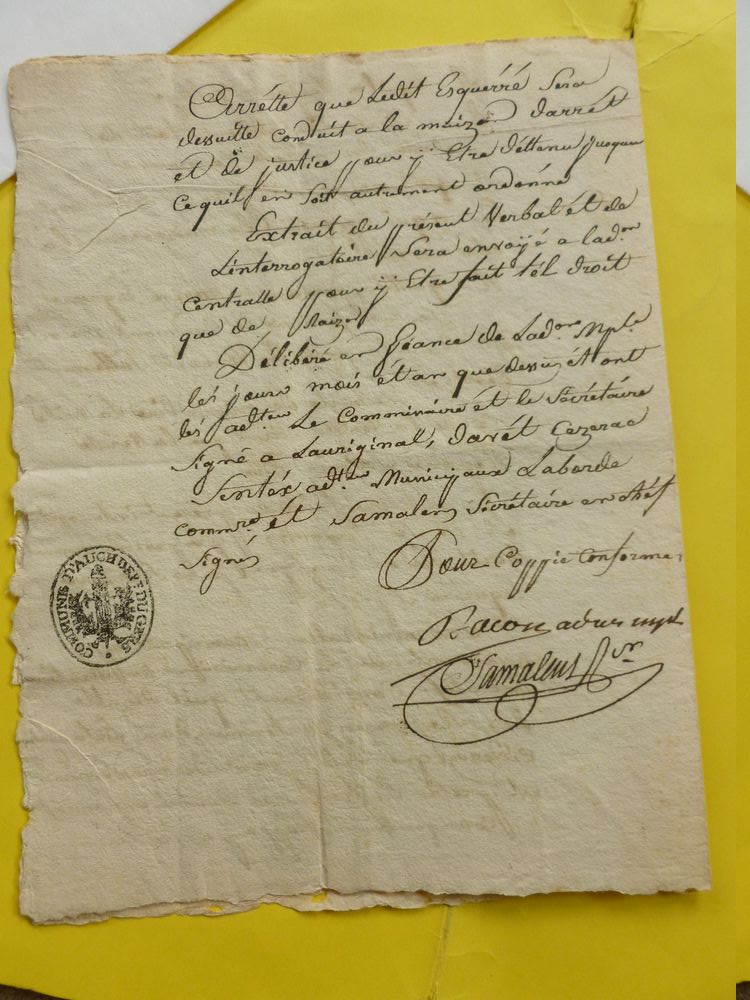 Arrétte que Ledit Esquerré Sera
dessuitte Conduit a la maizon darrét
et de justice pour y Etre déttenu jusqua
Cequil en Soit autrement ordonné
Extrait du présent Verbal et de
Linterrogatoire Sera envoyé a ladon
Centralle pour y Etre fait tél droit
que de Raizon
Délibéré en Séance de Ladon Mple
les jours mois et an que dessus et ont
les adteurs Le Commissaire et le Sécrétaire
Signé a Lauriginal, darét Cezerac
Sentéx adteurs Municipaux Laborde
commre et Samalens Sécrétaire en chéf
Signés
Pour Coppie Conforme
COMMUNE D'AUCH DEPT DU GERS
Samalens